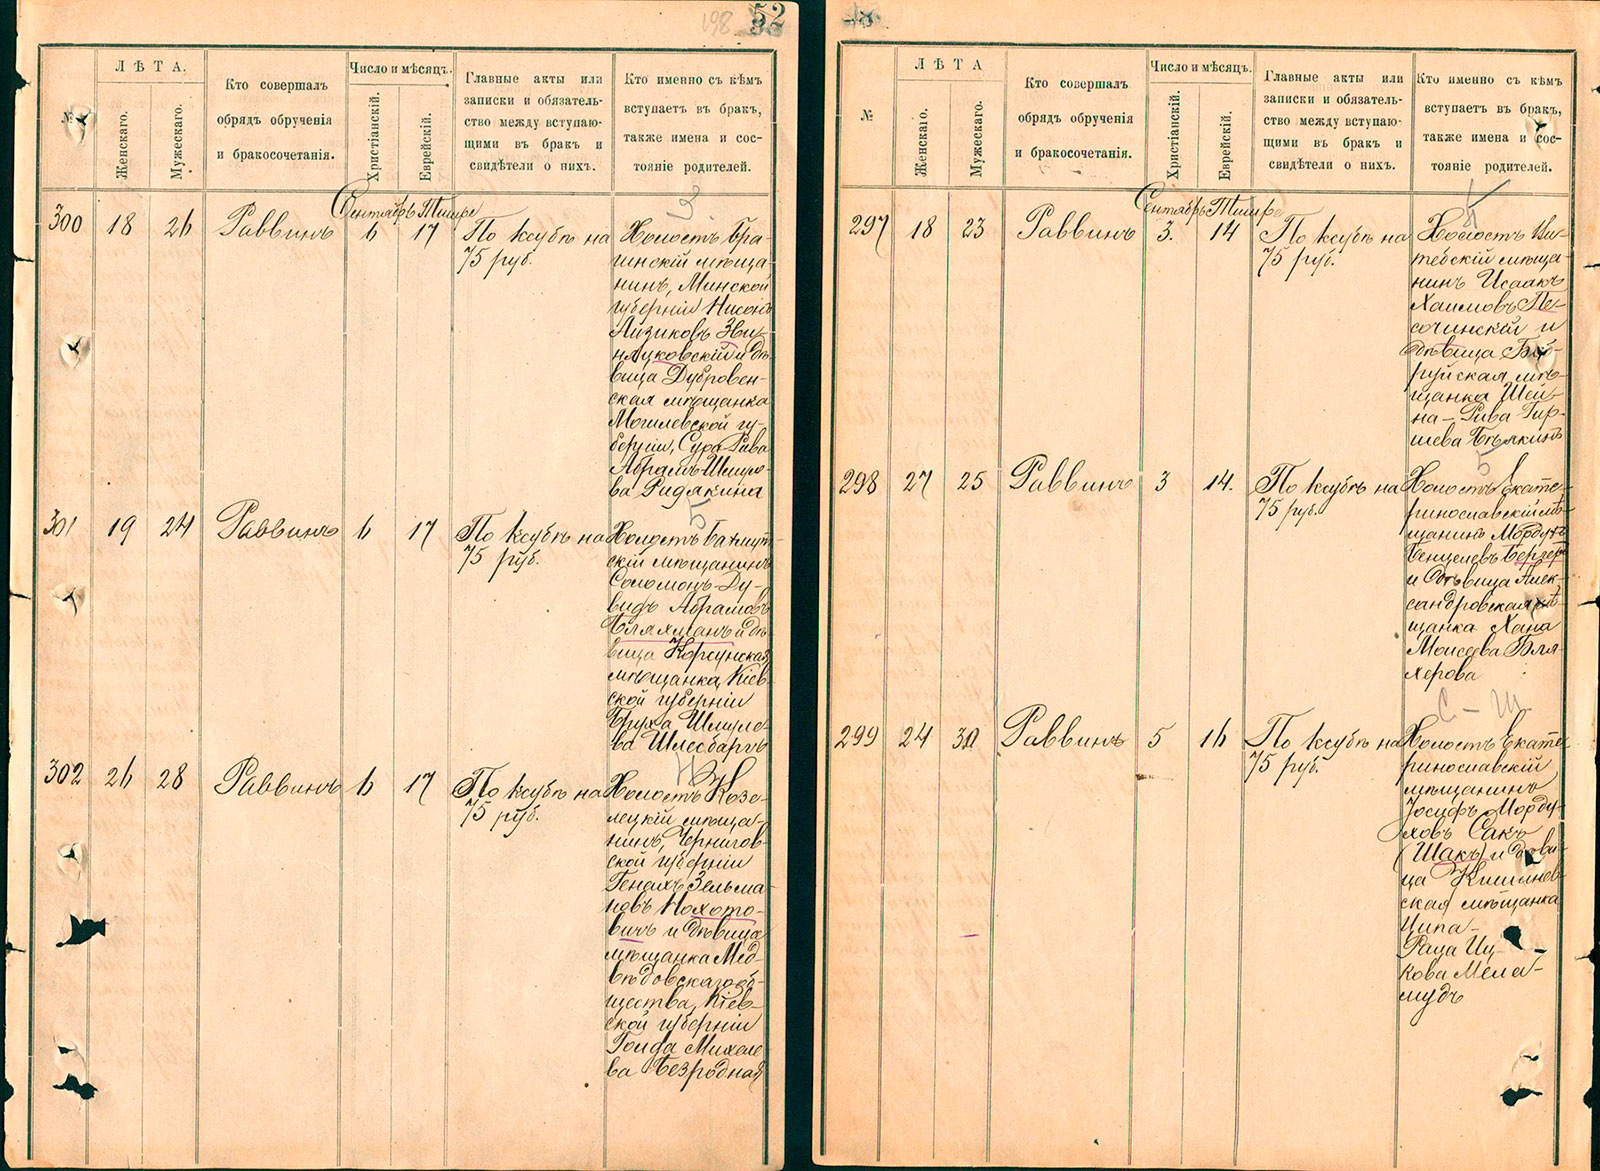 198
52
ЛѢТА.
№
Женскаго.
Мужескаго.
Кто совершалъ
обрядъ обрученія
и бракосочетанія.
Число и мѣсяцъ.
Христіанскій.
Еврейскій.
Главные акты или
записки и обязатель-
ство между вступаю-
щими въ бракъ и
свидѣтели о нихъ.
Кто именно съ кѣмъ
вступаетъ въ бракъ,
также имена и сос-
тояніе родителей.
Сентябрь Тишре
300 18 26 Раввинъ 6 17 По ксубѣ на
75 руб.
Холостъ Бра-
гинскій мѣща-
нинъ, Минской
губерніи Нисонъ
Айзиковъ
и дѣ-
вица Дубровен-
ская мѣщанка
Могилевской гу-
берніи, Сура Рива
Абрамъ-Шмуло-
ва Ридякина
301 19 24 Раввинъ 6 17 По ксубѣ на
75 руб.
Холостъ Бахмут-
скій мѣщанинъ
Соломонъ-Ду-
видъ Абрамовъ
Бляхманъ и дѣ-
вица Корсунская
мѣщанка, Кіев-
ской губерніи
Бруха Шмуле-
ва
302 26 28 Раввинъ 6 17 По ксубѣ на
75 руб.
Холостъ Козе-
лецкій мѣща-
нинъ, Чернигов-
ской губерніи
Генахъ Зельма-
новъ Нохото-
вичъ и дѣвица
мѣщанка Мед-
вѣдовскаго об-
щества, Кіев-
ской губерніи
Голда Михеле-
ва Безродная
ЛѢТА
№
Женскаго.
Мужескаго.
Кто совершалъ
обрядъ обрученія
и бракосочетанія.
Число и мѣсяцъ.
Христіанскій.
Еврейскій.
Главные акты или
записки и обязатель-
ство между вступаю-
щими въ бракъ и
свидѣтели о нихъ.
Кто именно съ кѣмъ
вступаетъ въ бракъ,
также имена и сос-
тояніе родителей.
Сентябрь Тишре
297 18 23 Раввинъ 3. 14 По ксубѣ на
75 руб.
Холостъ Ви-
тебскій мѣща-
нинъ Исаакъ
Хаимовъ Пе-
сочинскій и
дѣвица Боб-
руйская мѣ-
щанка Шей-
на-Рива Гир-
шева Бѣлкинъ
298 27 25 Раввинъ 3 14. По ксубѣ на
75 руб.
Холостъ Екате-
ринославскій мѣ-
щанинъ Мордухъ
Бенцелевъ Бергеръ
и дѣвица Алек-
сандровская мѣ-
щанка Хана
Моисеева Бля-
херова
С - Ш
299 24 30 Раввинъ 5 16 По ксубѣ на
75 руб.
Холостъ Екате-
ринославскій
мѣщанинъ
Іосифъ Морду-
ховъ Сакъ
(Шакъ) и дѣви-
ца Кишинев-
ская мѣщанка
Ципа-
Раца Иц-
кова Мела-
мудъ